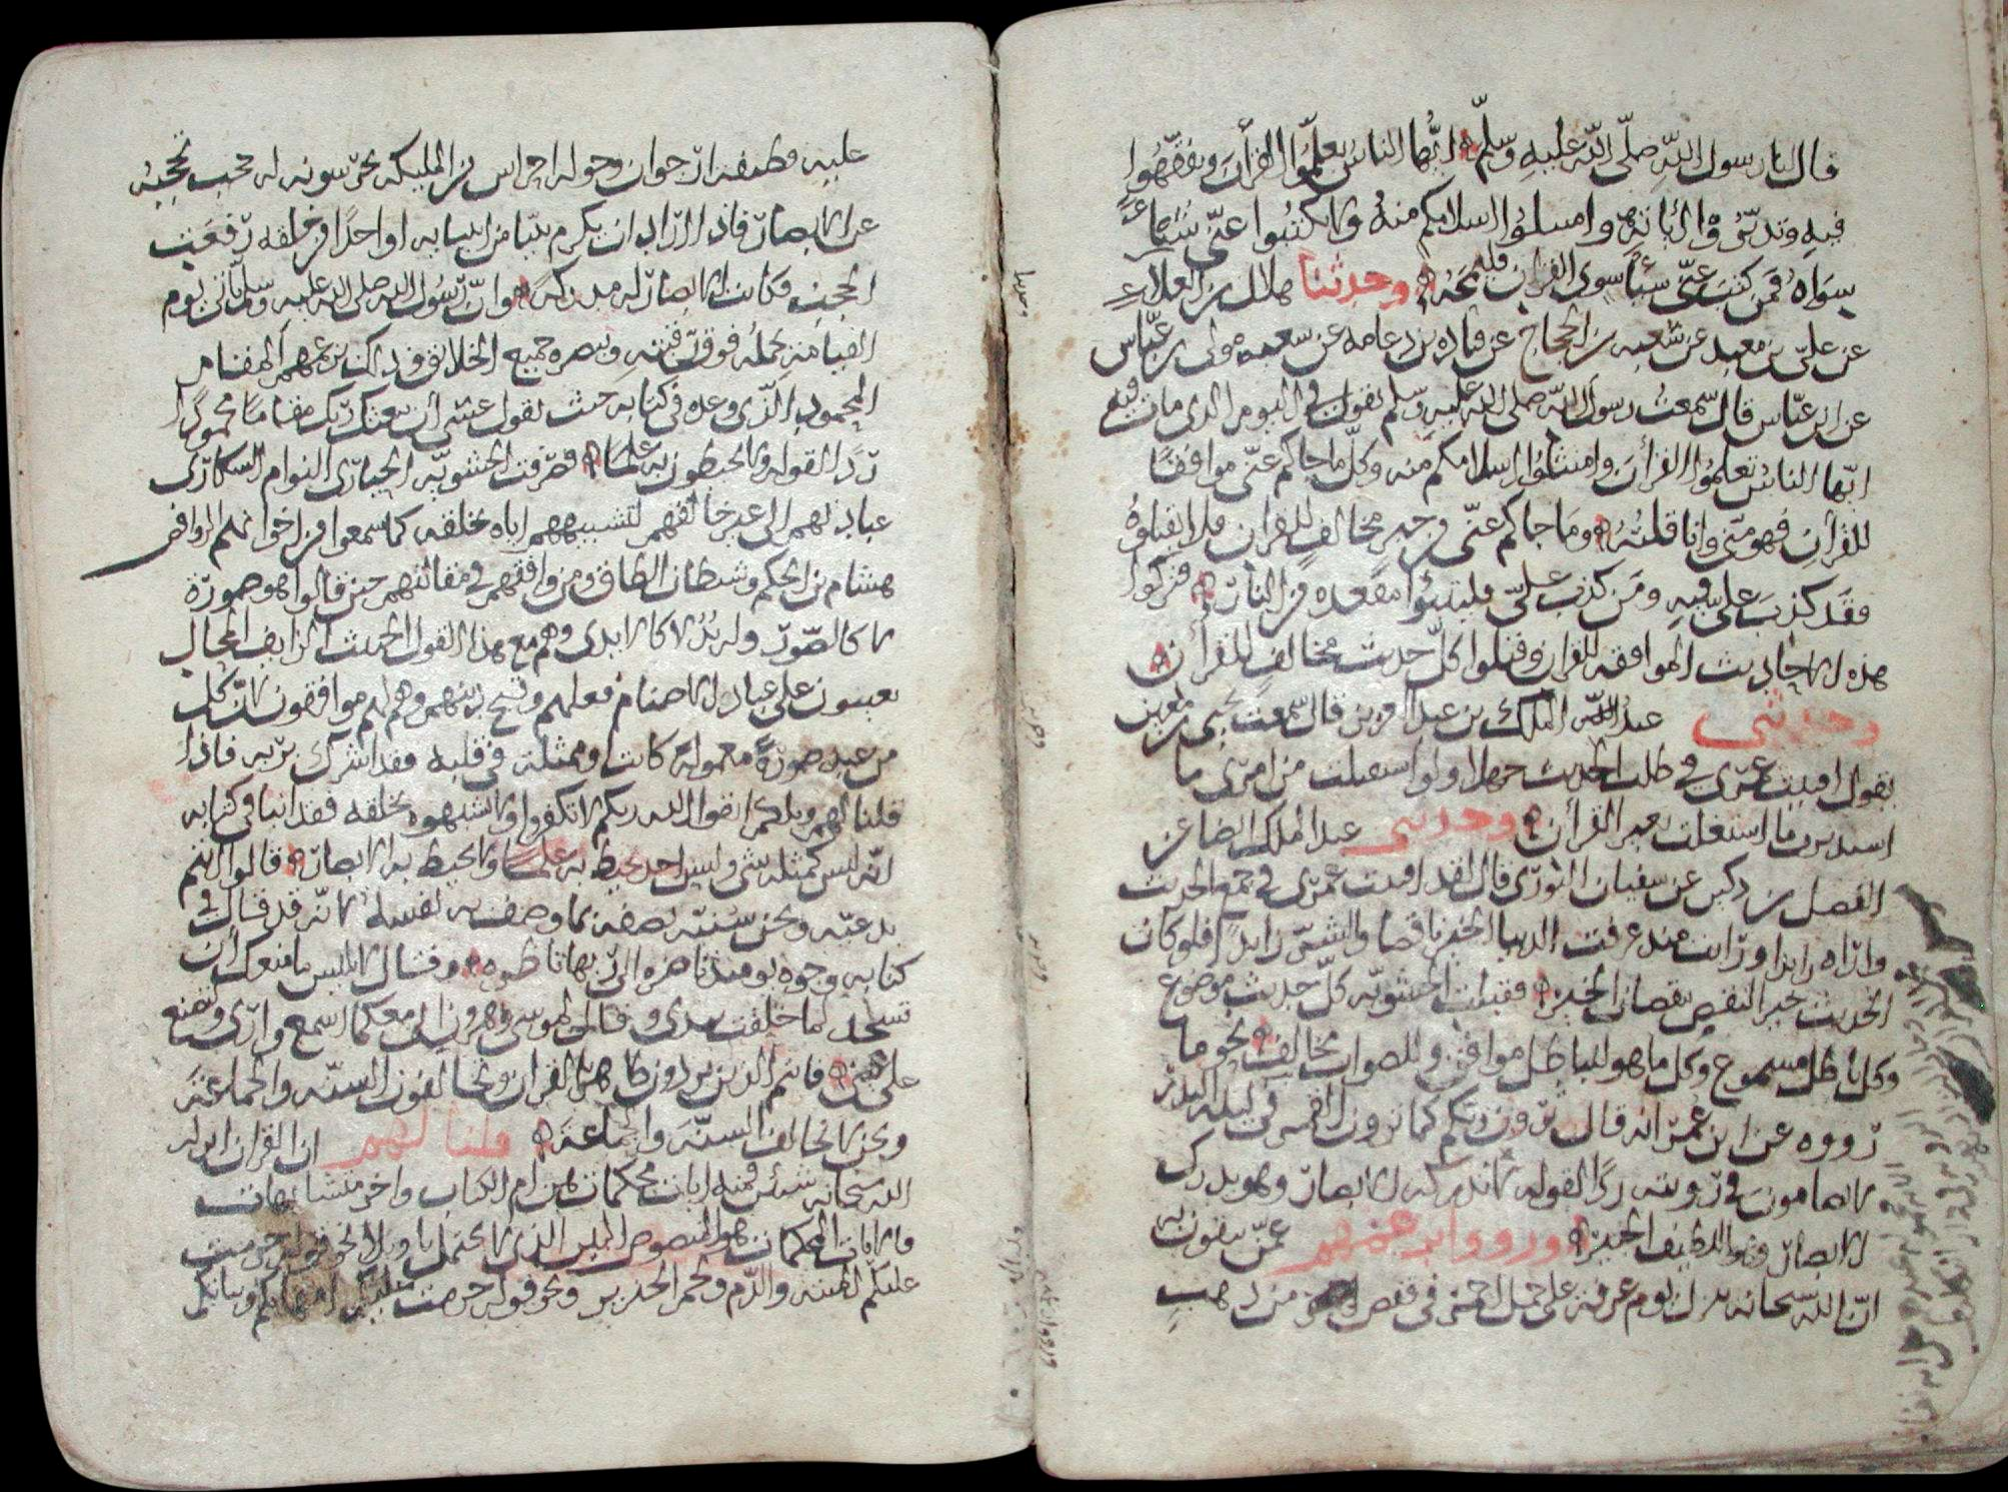 قال لنا رسول الله صلّى الله عليه وسلّم ايّها الناس تعلّموا القرأن وتفقّهوا
فيه وتدبّروا اياته وامسلوا اسلامكم منه ولا تكتبوا عنّي شيئا
سواه فمن كتب عنّي شيئا سوى القران فليمحه وحدثنا هلال بن العلاء
عن عليّ بن معبد عن شعبه بن الحجاج عن قتاده بن دعامه عن شعبه مولى بن عبّاس
عن ابن عبّاس قال سمعت رسول الله صلى الله عليه وسلم يقول في اليوم الذي مات فيه
ايّها الناس تعلموا القرأن وامتثلوا اسلامكم منه وكلّ ما جاكم عنّي موافقا
للقرأن فهو منّي وانا قلته وما جاكم عنّي من خبر مخالف للقران فلا تقبلوه
فقد كذب عليّ فيه ومن كذب عليّ فليتبوأ مقعده من النار فتركوا
هذه الاحاديث الموافقه للقران وقبلوا كلّ حديث مخالف للقرأن
وحدثني عبد الملك بن عبد العزيز قال سمعت يحيى بن معين
يقول افنيت عمري في طلب الحديث جهلا ولو استقبلت من امري ما
استدبرت ما اشتغلت بغير القرأن وحدثني عبد الملك ايضا عن
الفضل بن دكين عن سفيان الثوري قال لقد افنيت عمري في جمع الحديث
واراه زايدا ورايت منذ عرفت الدنيا الخير ناقصا والشر زايدا فلو كان
الحديث خيرا لنقص نقصان الخير فقبلت الحشويه كلّ حديث موضوع
وكل باطل مسموع وكل ما هو للباطل موافق وللصواب مخالف نحو ما
رووه عن ابن عمر انه قال ترون ربّكم كما ترون القمر في ليله البدر
لا تضامون في رويته ردا لقوله لا تدركه الابصار وهو يدرك
الابصار وهو اللطيف الخبير ورووا بزعمهم عمّن يثقون به
انّ الله سبحانه ينزل يوم عرفة على جمل احمر في قفص من ذهب
عليه قطيفة ارجوان وحوله احراس من المليكه يحرسونه له حجب تحجبه
عن الابصار فاذا اراد ان يكرم نبيّا من انبيايه او احدا من خلقه رفعت
الحجب فكانت الابصار له مدركة وانّ رسول الله صلى الله عليه وسلم ياتي يوم
القيامة يحمله فوق رقبته ويبصره جميع الخلائق وذلك بزعمهم المقام
المحمود الذي وعده في كتابه حيث يقول عسى أن يبعثك ربك مقاما محمودا
ردّا لقوله ولا يحيطون به علما فصرفت الحشويّه الحيارى النوام السكارى
عبادتهم الى غير خالقهم لتشبيههم اياه بخلقه كما سمعوا من اخوانهم الروافض
هشام بن الحكم وشيطان الطاق ومن وافقهم في مقالتهم حين قالوا هو صورة
لا كالصور وله يد لا كالايدي وهم مع هذا القول الخبيث الزايف المحال
يعيبون على عباد الاصنام فعلهم وقبح دينهم وهم لهم موافقون لانّ كل
من عبد صورة معمولة كانت او ممثلة في قلبه فقد اشرك بربه فاذا
قلنا لهم ويلكم اتقوا الله ربكم لا تكفروا ولا تشبهوه بخلقه فقد انبأ في كتابه
انه ليس كمثله شي وليس احد يحيط به علما ولا يحيط به الابصار قالوا انتم
بدعيّه ونحن سنيّه نصفه بما وصف به نفسه لانّه قد قال في
كتابه وجوه يومئذ ناضره الى ربها ناظره وقال لابليس ما منعك أن
تسجد لما خلقت بيدي وقال لموسى وهرون انني معكما اسمع وارى ولتصنع
على عيني فانتم الذين تردون ظاهر القران وتخالفون السنّه والجماعة
ونحن لا نخالف السنّة والجماعة قلنا لهم ان القران انزله
الله سبحانه شيئين فمنه ايات محكمات هن ام الكتاب واخر متشابهات
والايات المحكمات هو المنصوص المبين الذي لا يحتمل تاويلا نحو قوله حرمت
عليكم الميتة والدّم ولحم الخنزير ونحو قوله حرمت عليكم امهاتكم وبناتكم